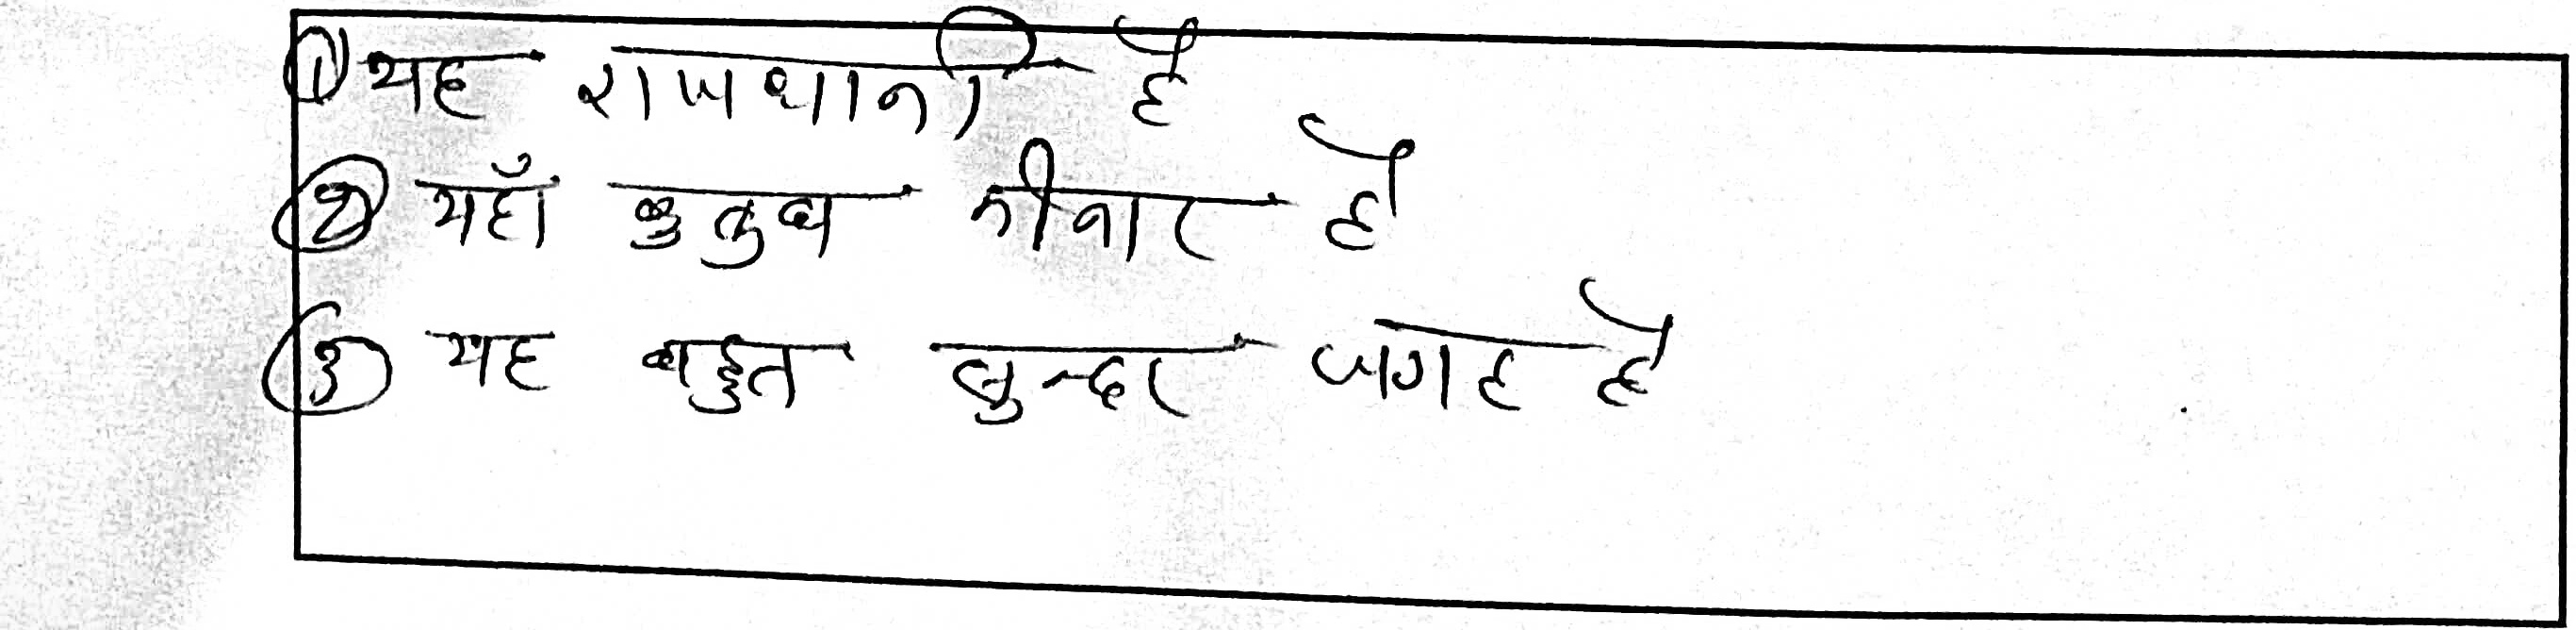 ① यह राजधानी है
② यहाँ कुतुब मीनार है
③ यह बहुत सुन्दर जगह है